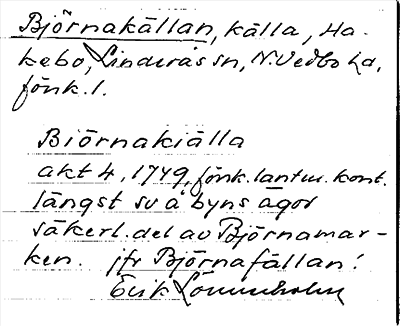 Björnakällan, källa, Ha-
kebo, Linderås sn, N. Vedbo hd,
Jönk. l.
Biörnakiälla
akt 4, 1749, Jönk. lantm. kont.
längst sv å byns ägor
säkerl. del av Björnamar-
ken. jfr Björnafällan!
Erik Lönnholm